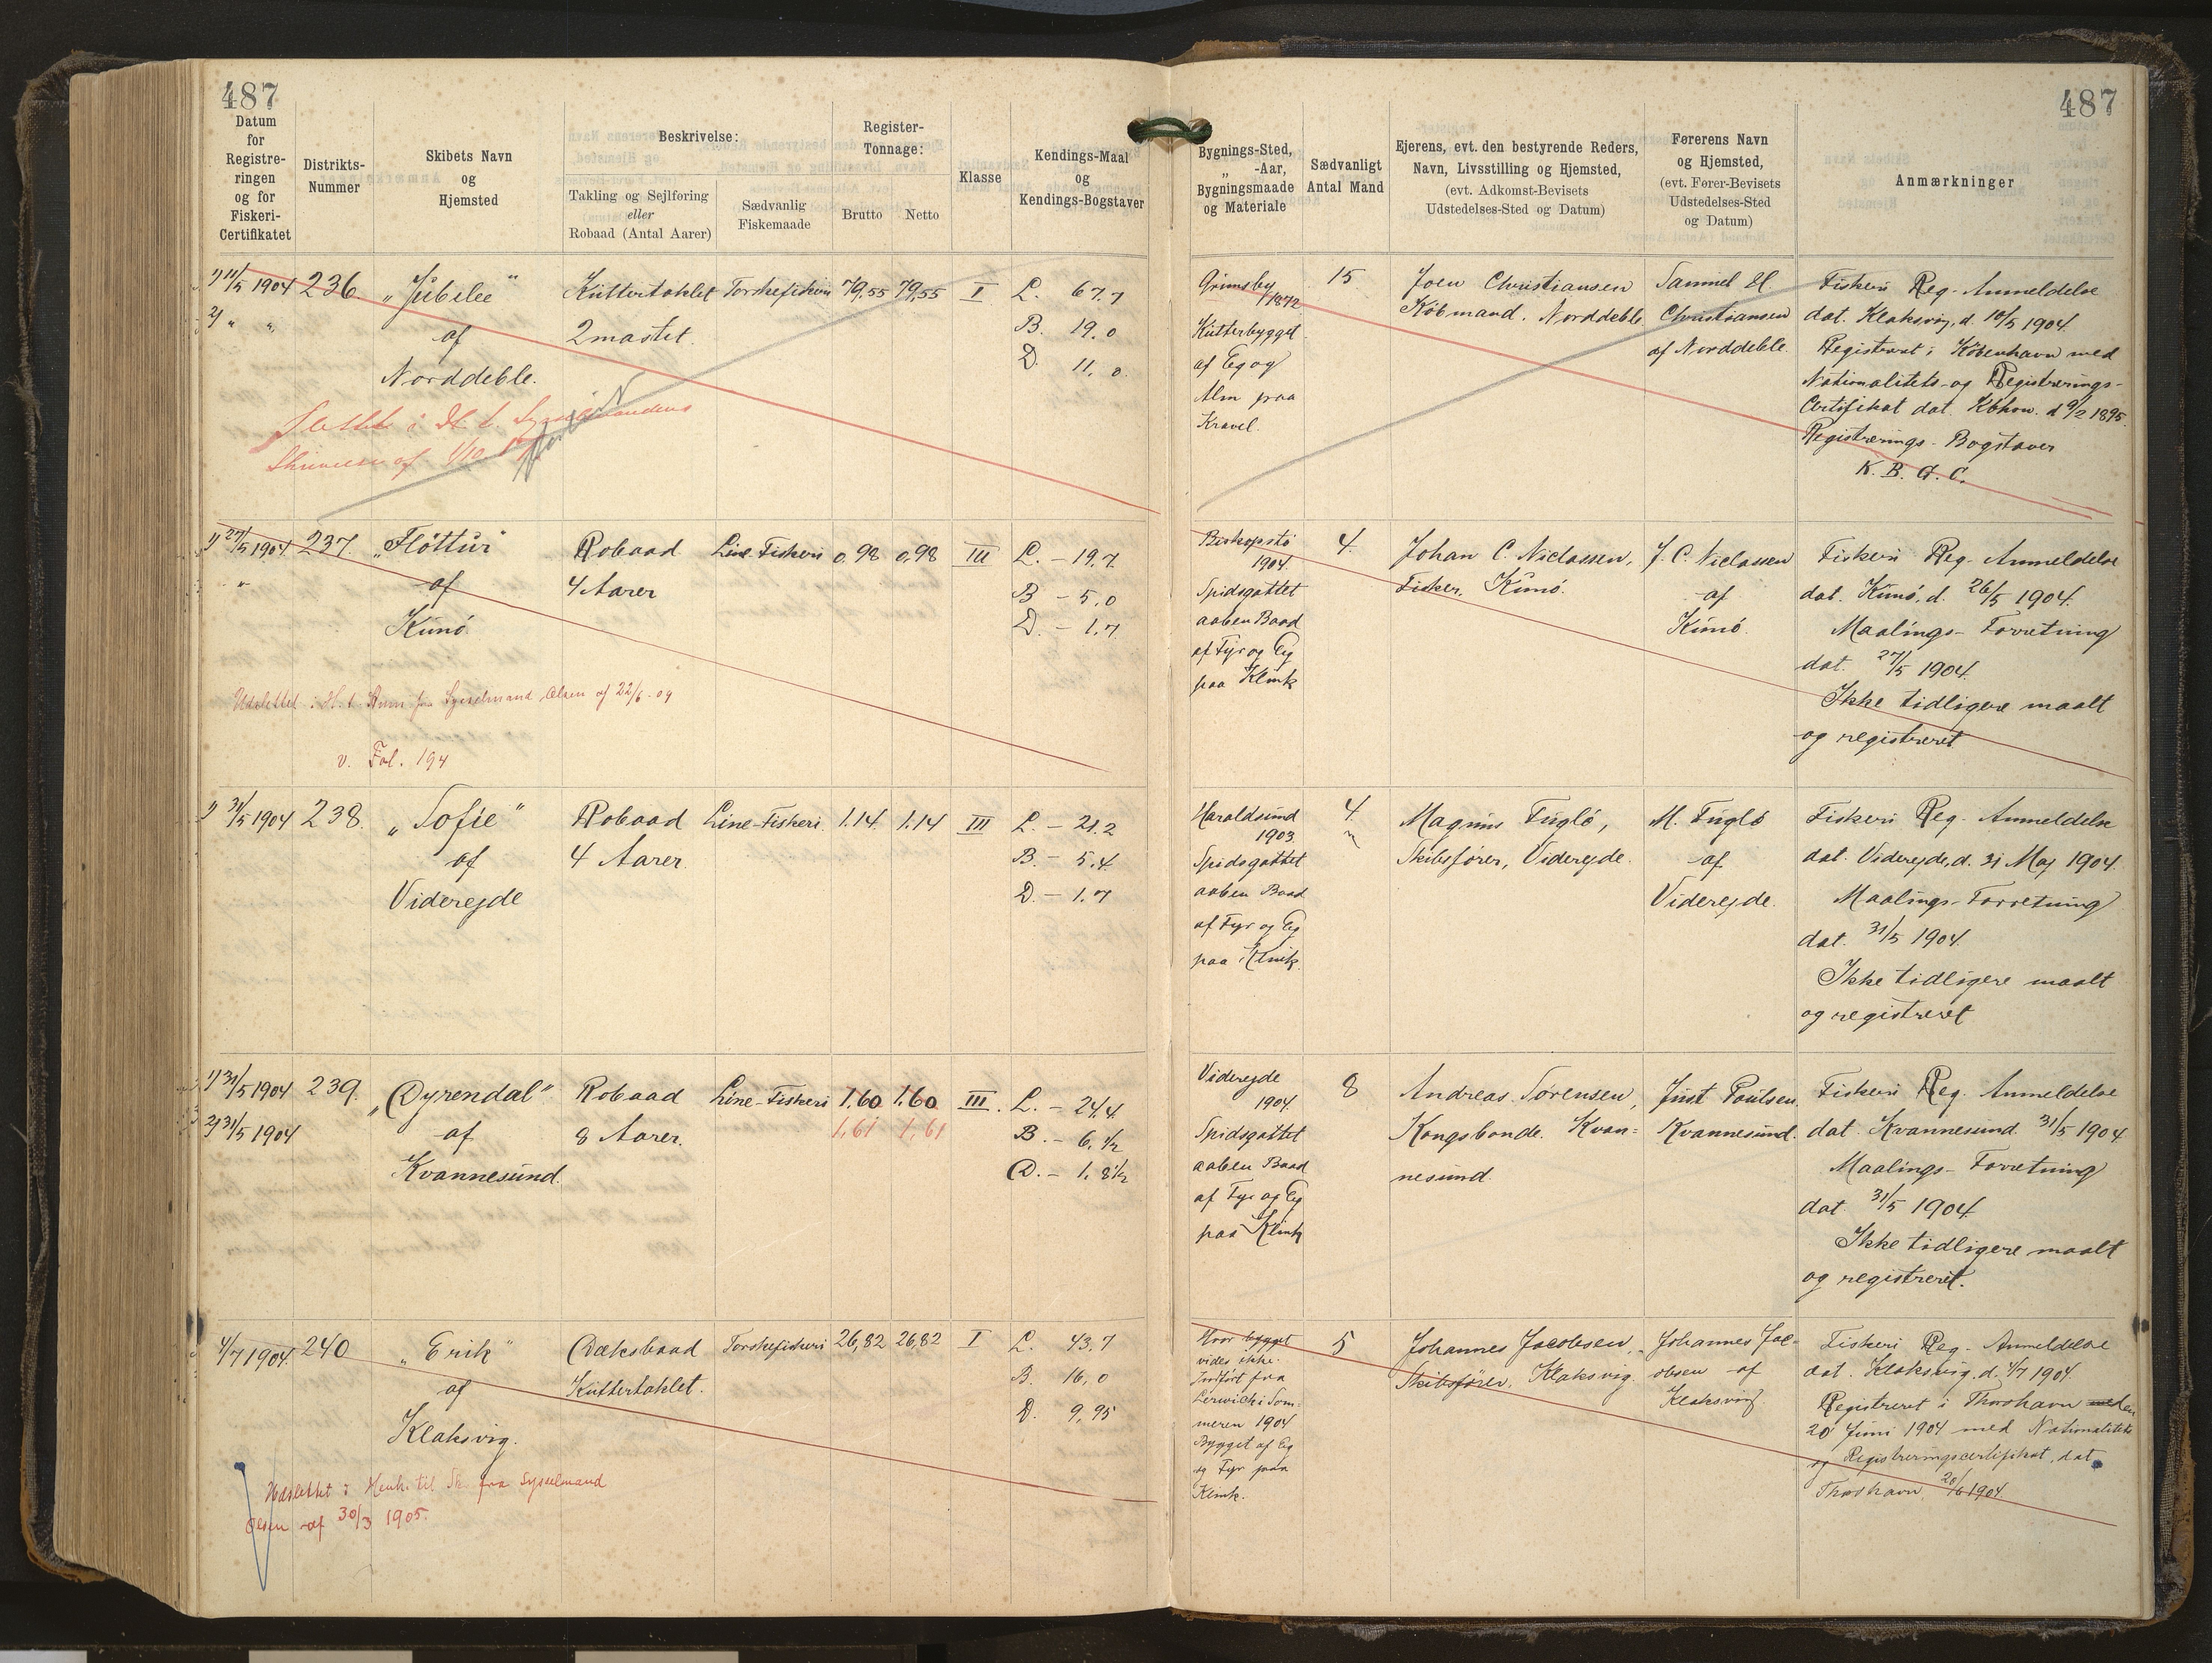 487
487
Datum
for
Registre-
ringen
og for
Fiskeri-
Certifikatet
Distrikts-
Nummer
Skibets Navn
og
Hjemsted
Beskrivelse:
Takling og Sejlføring
eller
Robaad (Antal Aarer)
Sædvanlig
Fiskemaade
Register-
Tonnage:
Brutto
Netto
Klasse
Kendings-Maal
og
Kendings-Bogstaver
Bygnings-Sted,
„ -Aar,
Bygningsmaade
og Materiale
Sædvanligt
Antal Mand
Ejerens, evt. den bestyrende Reders,
Navn, Livsstilling og Hjemsted,
(evt. Adkomst-Bevisets
Udstedelses-Sted og Datum)
Førerens Navn
og Hjemsted,
(evt. Fører-Bevisets
Udstedelses-Sted
og Datum)
Anmærkninger
1) 11/5 1904
2) „ „
236
„Jubilee“
af
Norddeble.
Kuttertaklet
2mastet.
Torskefiskeri
79,55
79,55
I
L. 67.7
B. 19.0
D. 11.0.
Grimsby
1872
Kutterbygget
af Eg og
Alm paa
Kravel.
15
Joen Christiansen
Købmand. Norddeble.
Samuel H.
Christiansen
af Norddeble.
Fiskeri Reg. Anmeldelse
dat. Klaksvig, d. 10/5 1904.
Registreret i København med
Nationalitets- og Registrerings-
Certifikat dat. Kbhvn. d 9/2 1895.
Registrerings-Bogstaver
K. B. G. C.
Slettet i H. t. Sysselmandens
Skrivelse af 1/10
1) 27/5 1904.
„
237.
„Flóttur“
af
Kunö.
Robaad
4 Aarer
Line-Fiskeri
0,98
0,98
III
L. – 19.7.
B – 5,0
D. – 1,7
Biskopstö
1904.
Spidsgattet
aaben Baad
af Fyr og Eg
paa Klink
4.
Johan C. Niclassen,
Fisker, Kunö.
J. C. Niclassen
af
Kunö.
Fiskeri Reg. Anmeldelse
dat. Kunö, d. 26/5 1904.
Maalings-Forretning
dat. 27/5 1904.
Ikke tidligere maalt
og registreret
Udslettet i H. t. Anm. fra Sysselmand Olsen af 22/6-09
v. Fol. 194
1) 31/5 1904
238.
„Sofie“
af
Viderejde
Robaad
4 Aarer.
Line-Fiskeri.
1.14.
1.14
III
L. – 21.2
B. – 5.4.
D – 1.7
Haraldsund
1903.
Spidsgattet
aaben Baad
af Fyr og Eg
paa Klink.
4.
Magnus Fuglö,
Skibsfører, Viderejde.
M. Fuglö
af
Viderejde.
Fiskeri Reg. Anmeldelse
dat. Viderejde, d. 31 Maj 1904.
Maalings-Forretning
dat. 31/5 1904.
Ikke tidligere maalt
og registreret
1) 31/5 1904
2) 31/5 1904
239.
„Dyrendal“
af
Kvannesund.
Robaad
8 Aarer.
Line-Fiskeri
1,60
1,60
1,61
1,61
III.
L. – 24.4.
B. – 6, 1/2
D. – 1. 8 1/2
Viderejde
1904.
Spidsgattet
aaben Baad
af Fyr og Eg
paa Klink
8
Andreas Sørensen,
Kongsbonde. Kvan=
nesund.
Just Poulsen.
Kvannesund.
Fiskeri Reg. Anmeldelse
dat. Kvannesund. 31/5 1904
Maalings-Forretning
dat. 31/5 1904.
Ikke tidligere maalt
og registreret.
4/7 1904.
240
„Erik“
af
Klaksvig.
Dæksbaad
Kuttertaklet.
Torskefiskeri
26,82
26,82
I
L. 43.7
B. 16,0
D. 9,95
Hvor bygget
vides ikke.
Indført fra
Lerwick i Som-
meren 1904
Bygget af Eg
og Fyr paa
Klink.
5
Johannes Jacobsen,
Skibsfører, Klaksvig.
Johannes Jac-
obsen af
Klaksvig
Fiskeri Reg. Anmeldelse
dat. Klaksvig, d. 4/7 1904.
Registreret i Thorshavn den
20 Juni 1904 med Nationalitets
og Registreringscertifikat, dat.
Thorshavn, 20/6 1904
Udslettet i Henh. til Sk. fra Sysselmand
Olsen af 30/3 1905.